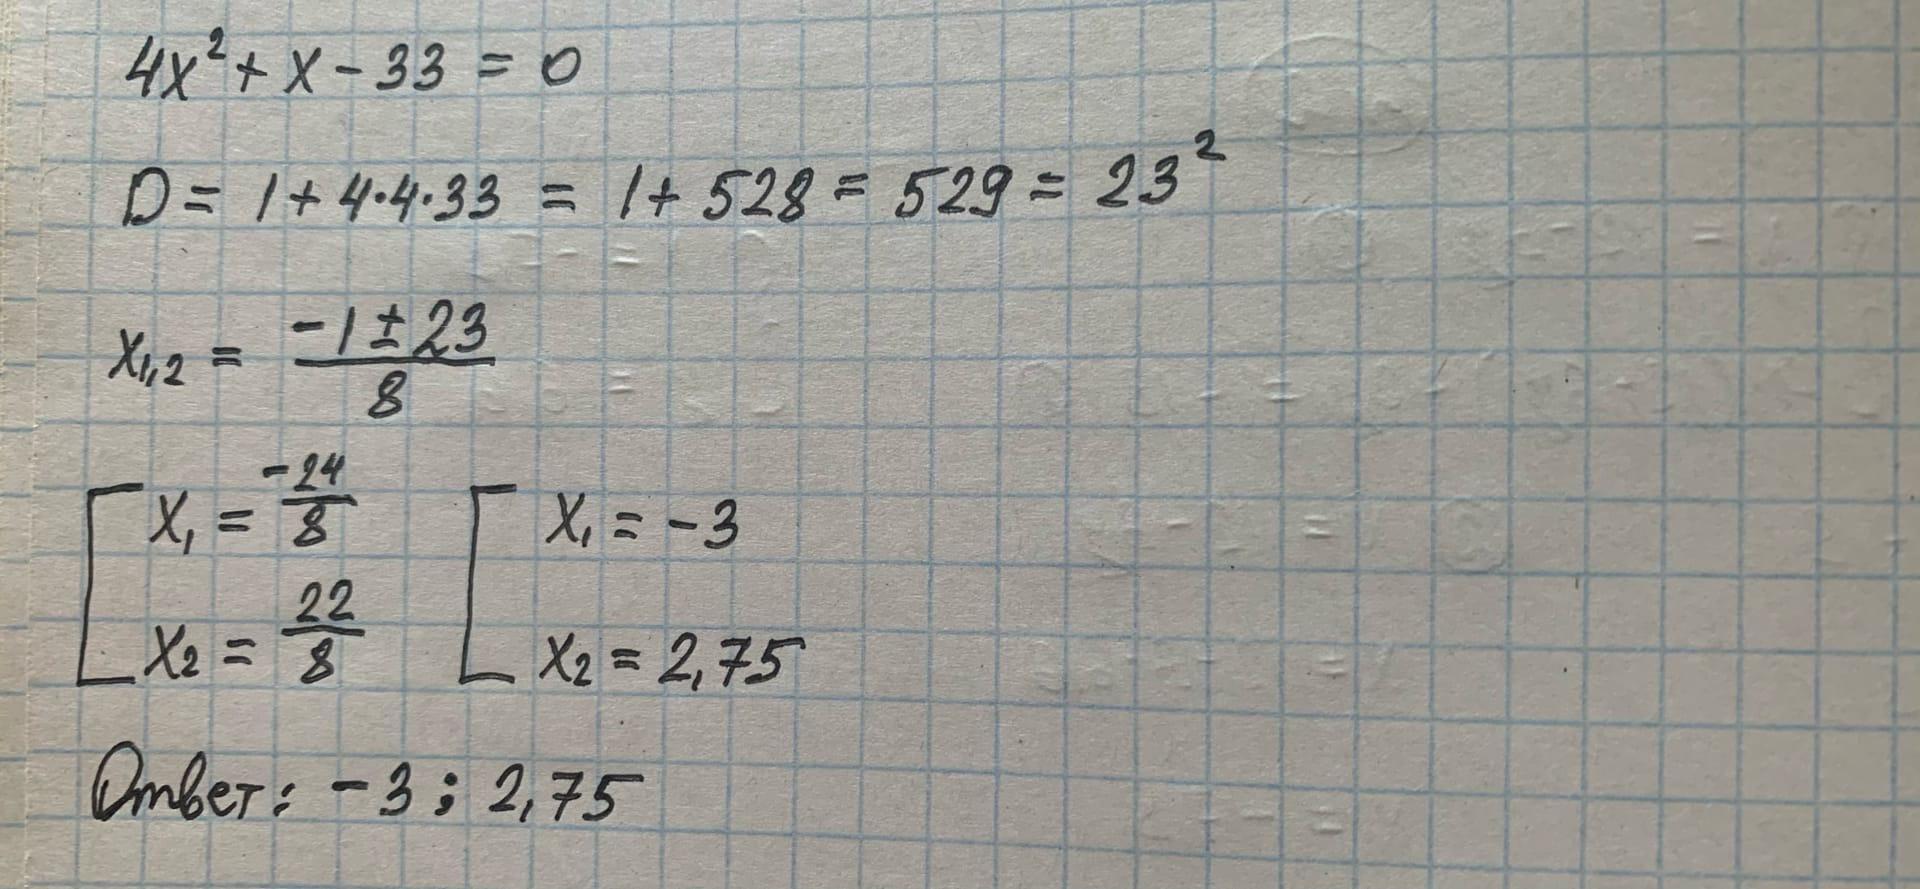 4x² + x - 33 = 0
D = 1 + 4·4·33 = 1 + 528 = 529 = 23²
x₁,₂ = (-1 ± 23)/8
[ x₁ = -24/8 [ x₁ = -3
x₂ = 22/8 x₂ = 2,75
Ответ: -3; 2,75